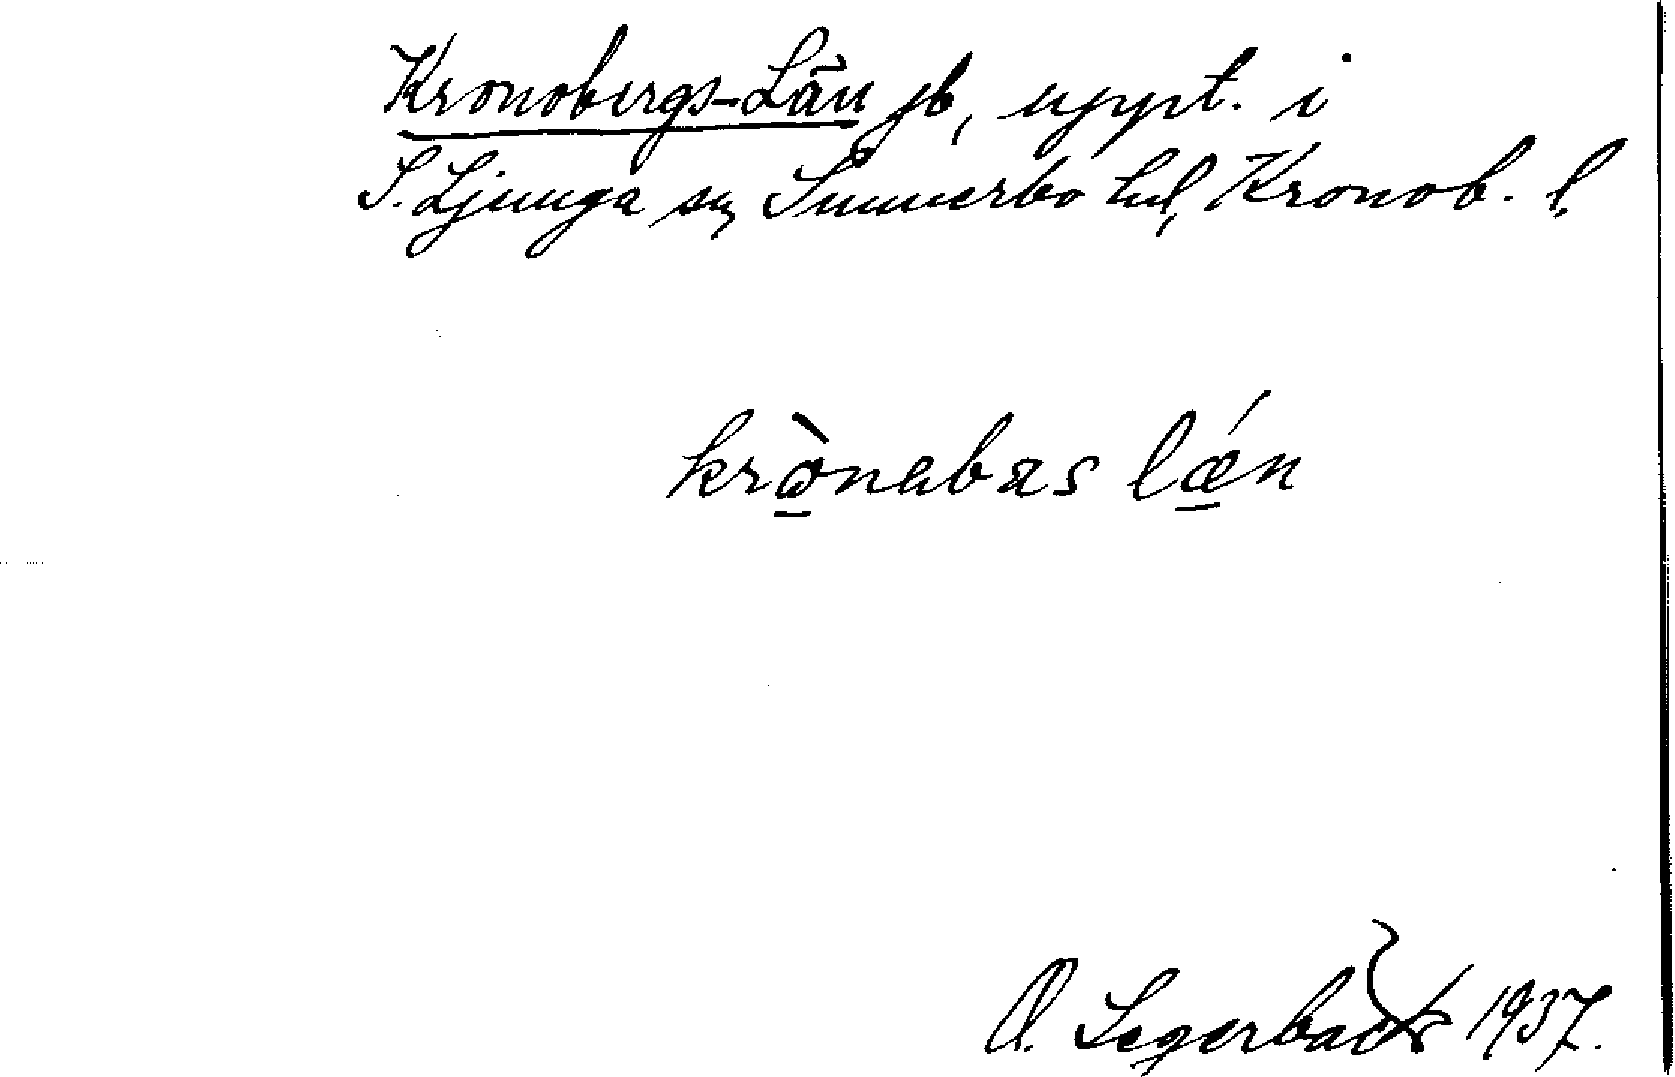 Kronobergs-Län jb, uppt. i
S. Ljunga sn, Sunnerbo hd, Kronob. l.
krònabas lǽn
O. Segerbäck 1937.